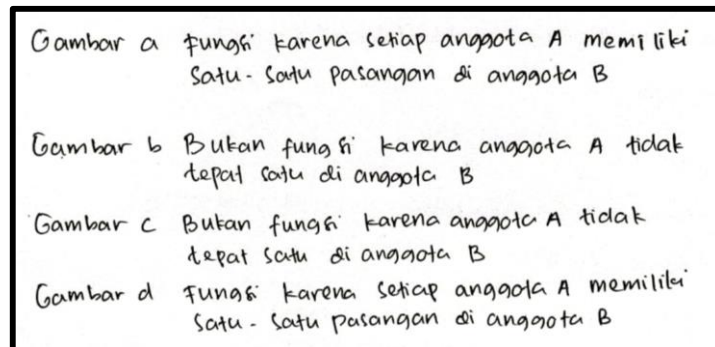 Gambar a fungsi karena setiap anggota A memiliki
satu-satu pasangan di anggota B
Gambar b Bukan fungsi karena anggota A tidak
tepat satu di anggota B
Gambar c Bukan fungsi karena anggota A tidak
tepat satu di anggota B
Gambar d fungsi karena setiap anggota A memiliki
satu-satu pasangan di anggota B